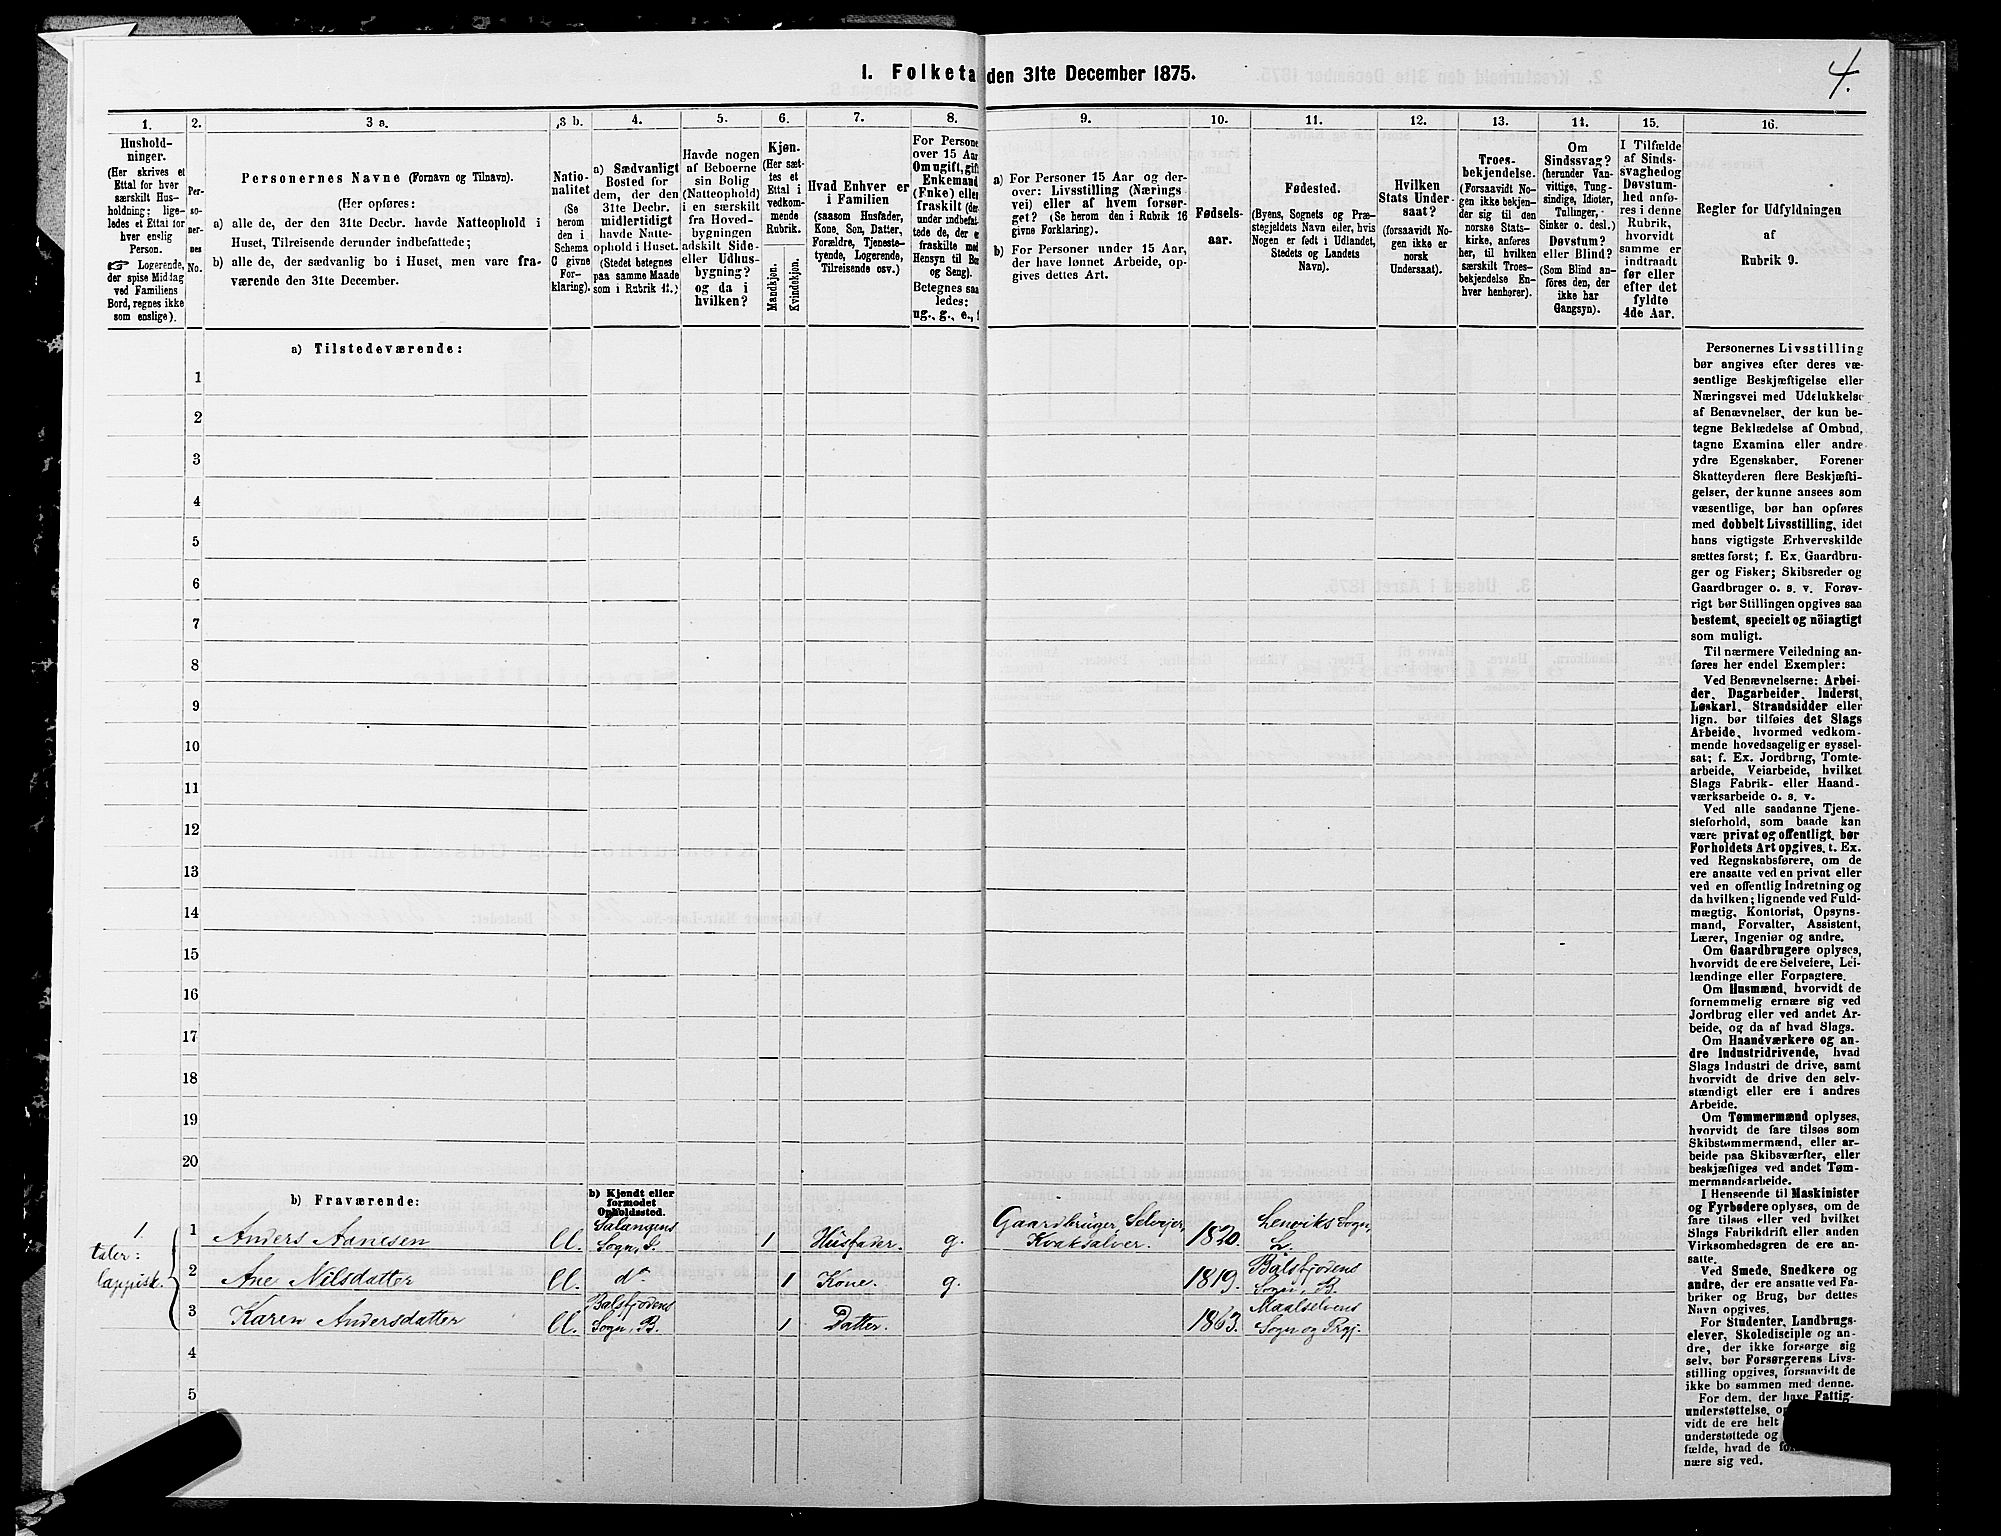 4.
I. Folketa den 31te December 1875.
1. 2. 3 a. 3 b. 4. 5. 6. 7. 8. 9. 10. 11. 12. 13. 14. 15. 16.
Hushold-
ninger.
(Her skrives et
Ettal for hver
særskilt Hus-
holdning; lige-
ledes et Ettal for
hver enslig
Person.
☞ Logerende,
der spise Middag
ved Familiens
Bord, regnes ikke
som enslige).
Per-
so-
ner-
nes
No.
Personernes Navne (Fornavn og Tilnavn).
(Her opføres:
a) alle de, der den 31te Decbr. havde Natteophold i
Huset, Tilreisende derunder indbefattede;
b) alle de, der sædvanlig bo i Huset, men vare fra-
værende den 31te December.
Natio-
nalitet
(Se
herom
den i
Schema
C givne
For-
klaring).
a) Sædvanligt
Bosted for
dem, der den
31te Decbr.
midlertidigt
havde Natte-
ophold i Huset.
(Stedet betegnes
paa samme Maade
som i Rubrik 11.)
Havde nogen
af Beboerne
sin Bolig
(Natteophold)
i en særskilt
fra Hoved-
bygningen
adskilt Side-
eller Udhus-
bygning?
og da i
hvilken?
Kjøn.
(Her sæt-
tes et
Ettal i
vedkom-
mende
Rubrik.
Mandkjøn.
Kvindekjøn.
Hvad Enhver er
i Familien
(saasom Husfader,
Kone, Søn, Datter,
Forældre, Tjeneste-
tyende, Logerende,
Tilreisende osv.)
For Persone
over 15 Aar
Om ugift, gift
Enkemand
(Enke) elle
fraskilt (der
under indbefat
tede de, der e
fraskilte med
Hensyn til Bo
og Seng).
Betegnes saa
ledes:
ug., g., e., f
a) For Personer 15 Aar og der-
over: Livsstilling (Nærings-
vei) eller af hvem forsør-
get? (Se herom den i Rubrik 16
givne Forklaring).
b) For Personer under 15 Aar,
der have lønnet Arbeide, op-
gives dettes Art.
Fødsels-
aar.
Fødested.
(Byens, Sognets og Præ-
stegjeldets Navn eller, hvis
Nogen er født i Udlandet,
Stedets og Landets
Navn).
Hvilken
Stats Under-
saat?
(forsaavidt No-
gen ikke er
norsk
Undersaat).
Troes-
bekjendelse.
(Forsaavidt No-
gen ikke bekjen-
der sig til den
norske Stats-
kirke, anføres
her, til hvilken
særskilt Troes-
bekjendelse En-
hver henhører).
Om
Sindssvag?
(herunder Van-
vittige, Tung-
sindige, Idioter,
Tullinger,
Sinker o. desl.)
Døvstum?
eller Blind?
(Som Blind an-
føres den, der
ikke har
Gangsyn).
I Tilfælde
af Sinds-
svaghed og
Døvstum-
hed anfø-
res i denne
Rubrik,
hvorvidt
samme er
indtraadt
før eller
efter det
fyldte
4de Aar.
Regler for Udfyldningen
af
Rubrik 9.
a) Tilstedeværende:
1
2
3
4
5
6
7
8
9
10
11
12
13
14
15
16
17
18
19
20
b) Fraværende:
b) Kjendt eller
formodet
Opholdssted.
1. taler: lappisk.
1 Anders Aanesen ll. Salangens Sogn, S. 1 Husfader. g. Gaardbruger, Selveier, Kvaksalver. 1820. Lenviks Sogn, L.
2 Ane Nilsdatter ll. do 1 Kone. g. 1819. Balsfjordens Sogn, B.
3 Karen Andersdatter ll. Balsfjordens Sogn, B. 1 Datter. 1863. Maalselvens Sogn og Prgj.
4
5
Personernes Livsstilling
bør angives efter deres væ-
sentlige Beskjæftigelse eller
Næringsvei med Udelukkelse
af Benævnelser, der kun be-
tegne Beklædelse af Ombud,
tagne Examina eller andre
ydre Egenskaber. Forener
Skatteyderen flere Beskjæfti-
gelser, der kunne ansees som
væsentlige, bør han opføres
med dobbelt Livsstilling, idet
hans vigtigste Erhvervskilde
sættes først; f. Ex. Gaardbru-
ger og Fisker; Skibsreder og
Gaardbruger o. s. v. Forøv-
rigt bør Stillingen opgives saa
bestemt, specielt og nöiagtigt
som muligt.
Til nærmere Veiledning an-
føres her endel Exempler:
Ved Benævnelserne: Arbei-
der, Dagarbeider, Inderst,
Løskarl, Strandsidder eller
lign. bør tilføies det Slags
Arbeide, hvormed vedkom-
mende hovedsagelig er syssel-
sat; f. Ex. Jordbrug, Tomte-
arbeide, Veiarbeide, hvilket
Slags Fabrik- eller Haand-
værksarbeide o. s. v.
Ved alle saadanne Tjene-
steforhold, som baade kan
være privat og offentligt, bør
Forholdets Art opgives, t. Ex.
ved Regnskabsførere, om de
ere ansatte ved en privat eller
ved en offentlig Indretning og
da hvilken; lignende ved Fuld-
mægtig, Kontorist, Opsyns-
mand, Forvalter, Assistent,
Lærer, Ingeniør og andre.
Om Gaardbrugere oplyses,
hvorvidt de ere Selveiere, Lei-
lændinge eller Forpagtere.
Om Husmænd, hvorvidt de
fornemmelig ernære sig ved
Jordbrug eller ved andet Ar-
beide, og da af hvad Slags.
Om Haandværkere og an-
dre Industridrivende, hvad
Slags Industri de drive, samt
hvorvidt de drive den selv-
stændigt eller ere i andres
Arbeide.
Om Tømmermænd oplyses,
hvorvidt de fare tilsøs som
Skibstømmermænd, eller ar-
beide paa Skibsværfter, eller
beskjæftiges ved andet Tøm-
mermandsarbeide.
I Henseende til Maskinister
og Fyrbødere oplyses, om de
fare tilsøs eller ved hvilket
Slags Fabrikdrift eller anden
Virksomhedsgren de ere an-
satte.
Ved Smede, Snedkere og
andre, der ere ansatte ved Fa-
briker og Brug, bør dettes
Navn opgives.
For Studenter, Landbrugs-
elever, Skoledisciple og an-
dre, der ikke forsørge sig
selv, bør Forsørgerens Livs-
stilling opgives, forsaavidt de
ikke bo sammen med denne.
For dem, der have Fattig-
understøttelse, o
vidt de ere helt
understøttede og
fælde, hvad de
nære sig ved.